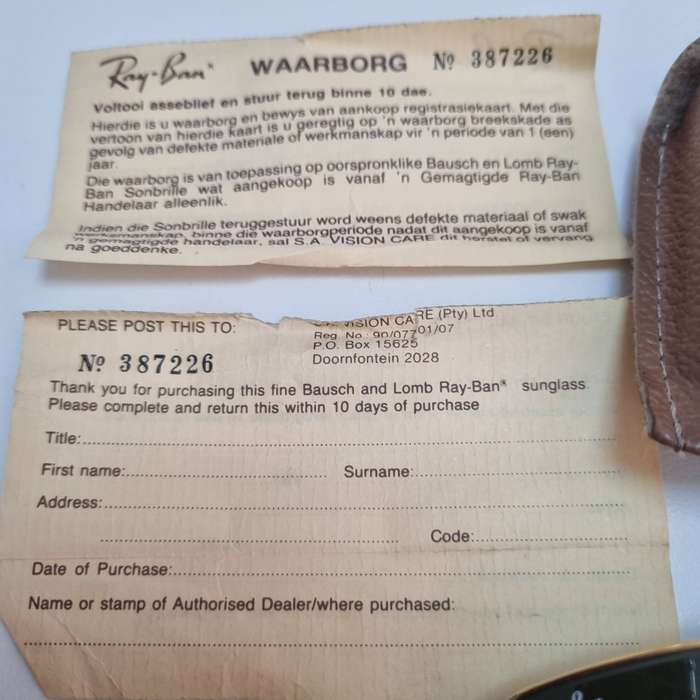 Ray-Ban® WAARBORG Nº 387226
Voltooi asseblief en stuur terug binne 10 dae.
Hierdie is u waarborg en bewys van aankoop registrasiekaart. Met die
vertoon van hierdie kaart is u geregtig op 'n waarborg breekskade as
gevolg van defekte materiale of werkmanskap vir 'n periode van 1 (een)
jaar.
Die waarborg is van toepassing op oorspronklike Bausch en Lomb Ray-
Ban Sonbrille wat aangekoop is vanaf 'n Gemagtigde Ray-Ban
Handelaar alleenlik.
Indien die Sonbrille teruggestuur word weens defekte materiaal of swak
werkmanskap, binne die waarborgperiode nadat dit aangekoop is vanaf
'n gemagtigde handelaar, sal S.A. VISION CARE dit herstel of vervang
na goeddenke.
PLEASE POST THIS TO:
VISION CARE (Pty) Ltd
Reg. No. 90/07701/07
P.O. Box 15625
Doornfontein 2028
Nº 387226
Thank you for purchasing this fine Bausch and Lomb Ray-Ban® sunglass.
Please complete and return this within 10 days of purchase
Title:
First name: Surname:
Address:
Code:
Date of Purchase:
Name or stamp of Authorised Dealer/where purchased: